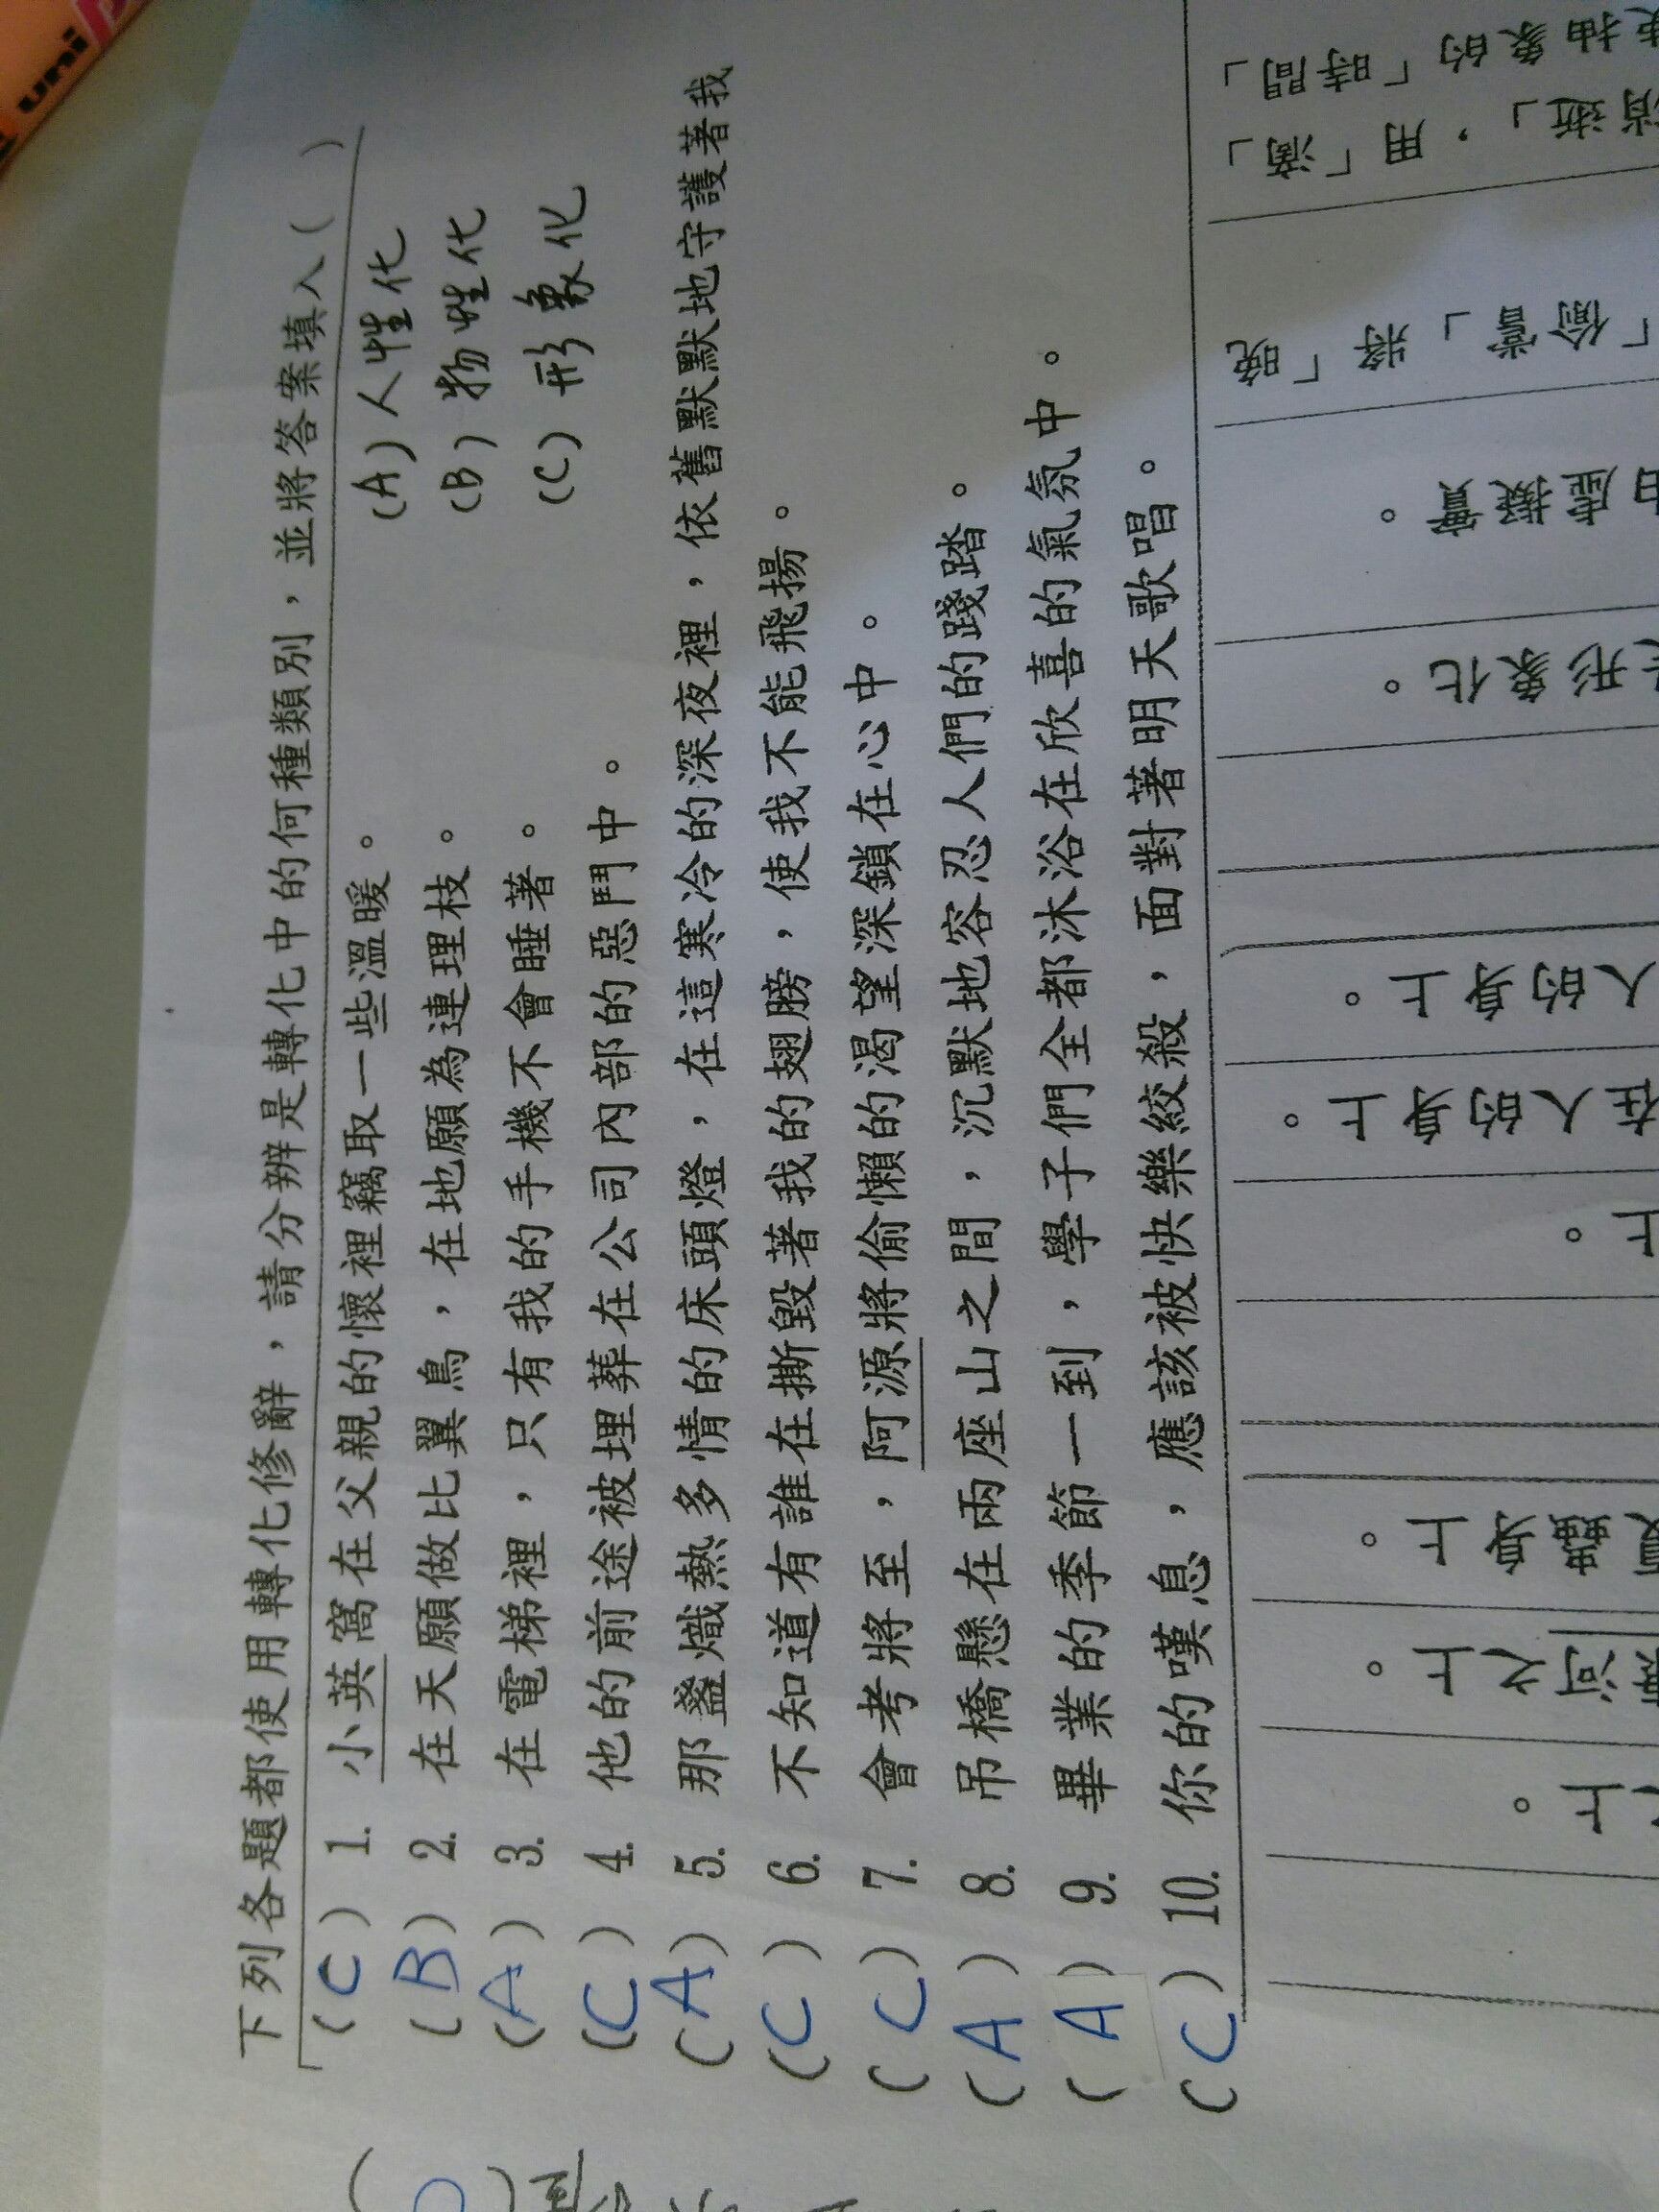 uni
下列各題都使用轉化修辭，請分辨是轉化中的何種類別，並將答案填入( )
(C) 1. 小英窩在父親的懷裡竊取一些溫暖。
(A)人性化
(B) 2. 在天願做比翼鳥，在地願為連理枝。
(B)物性化
(A) 3. 在電梯裡，只有我的手機不會睡著。
(C)形象化
(C) 4. 他的前途被埋葬在公司內部的惡鬥中。
(A) 5. 那盞熾熱多情的床頭燈，在這寒冷的深夜裡，依舊默默地守護著我
(C) 6. 不知道有誰在撕毀著我的翅膀，使我不能飛揚。
(C) 7. 會考將至，阿源將偷懶的渴望深鎖在心中。
(A) 8. 吊橋懸在兩座山之間，沉默地容忍人們的踐踏。
(A) 9. 畢業的季節一到，學子們全都沐浴在欣喜的氣氛中。
(C) 10. 你的嘆息，應該被快樂絞殺，面對著明天歌唱。
上。
河之上。
身上。
上。
在人的身上。
人的身上。
形象化。
由虛擬實。
「偷嘗」將「晚
消逝」，用「滴」
抽象的「時間」